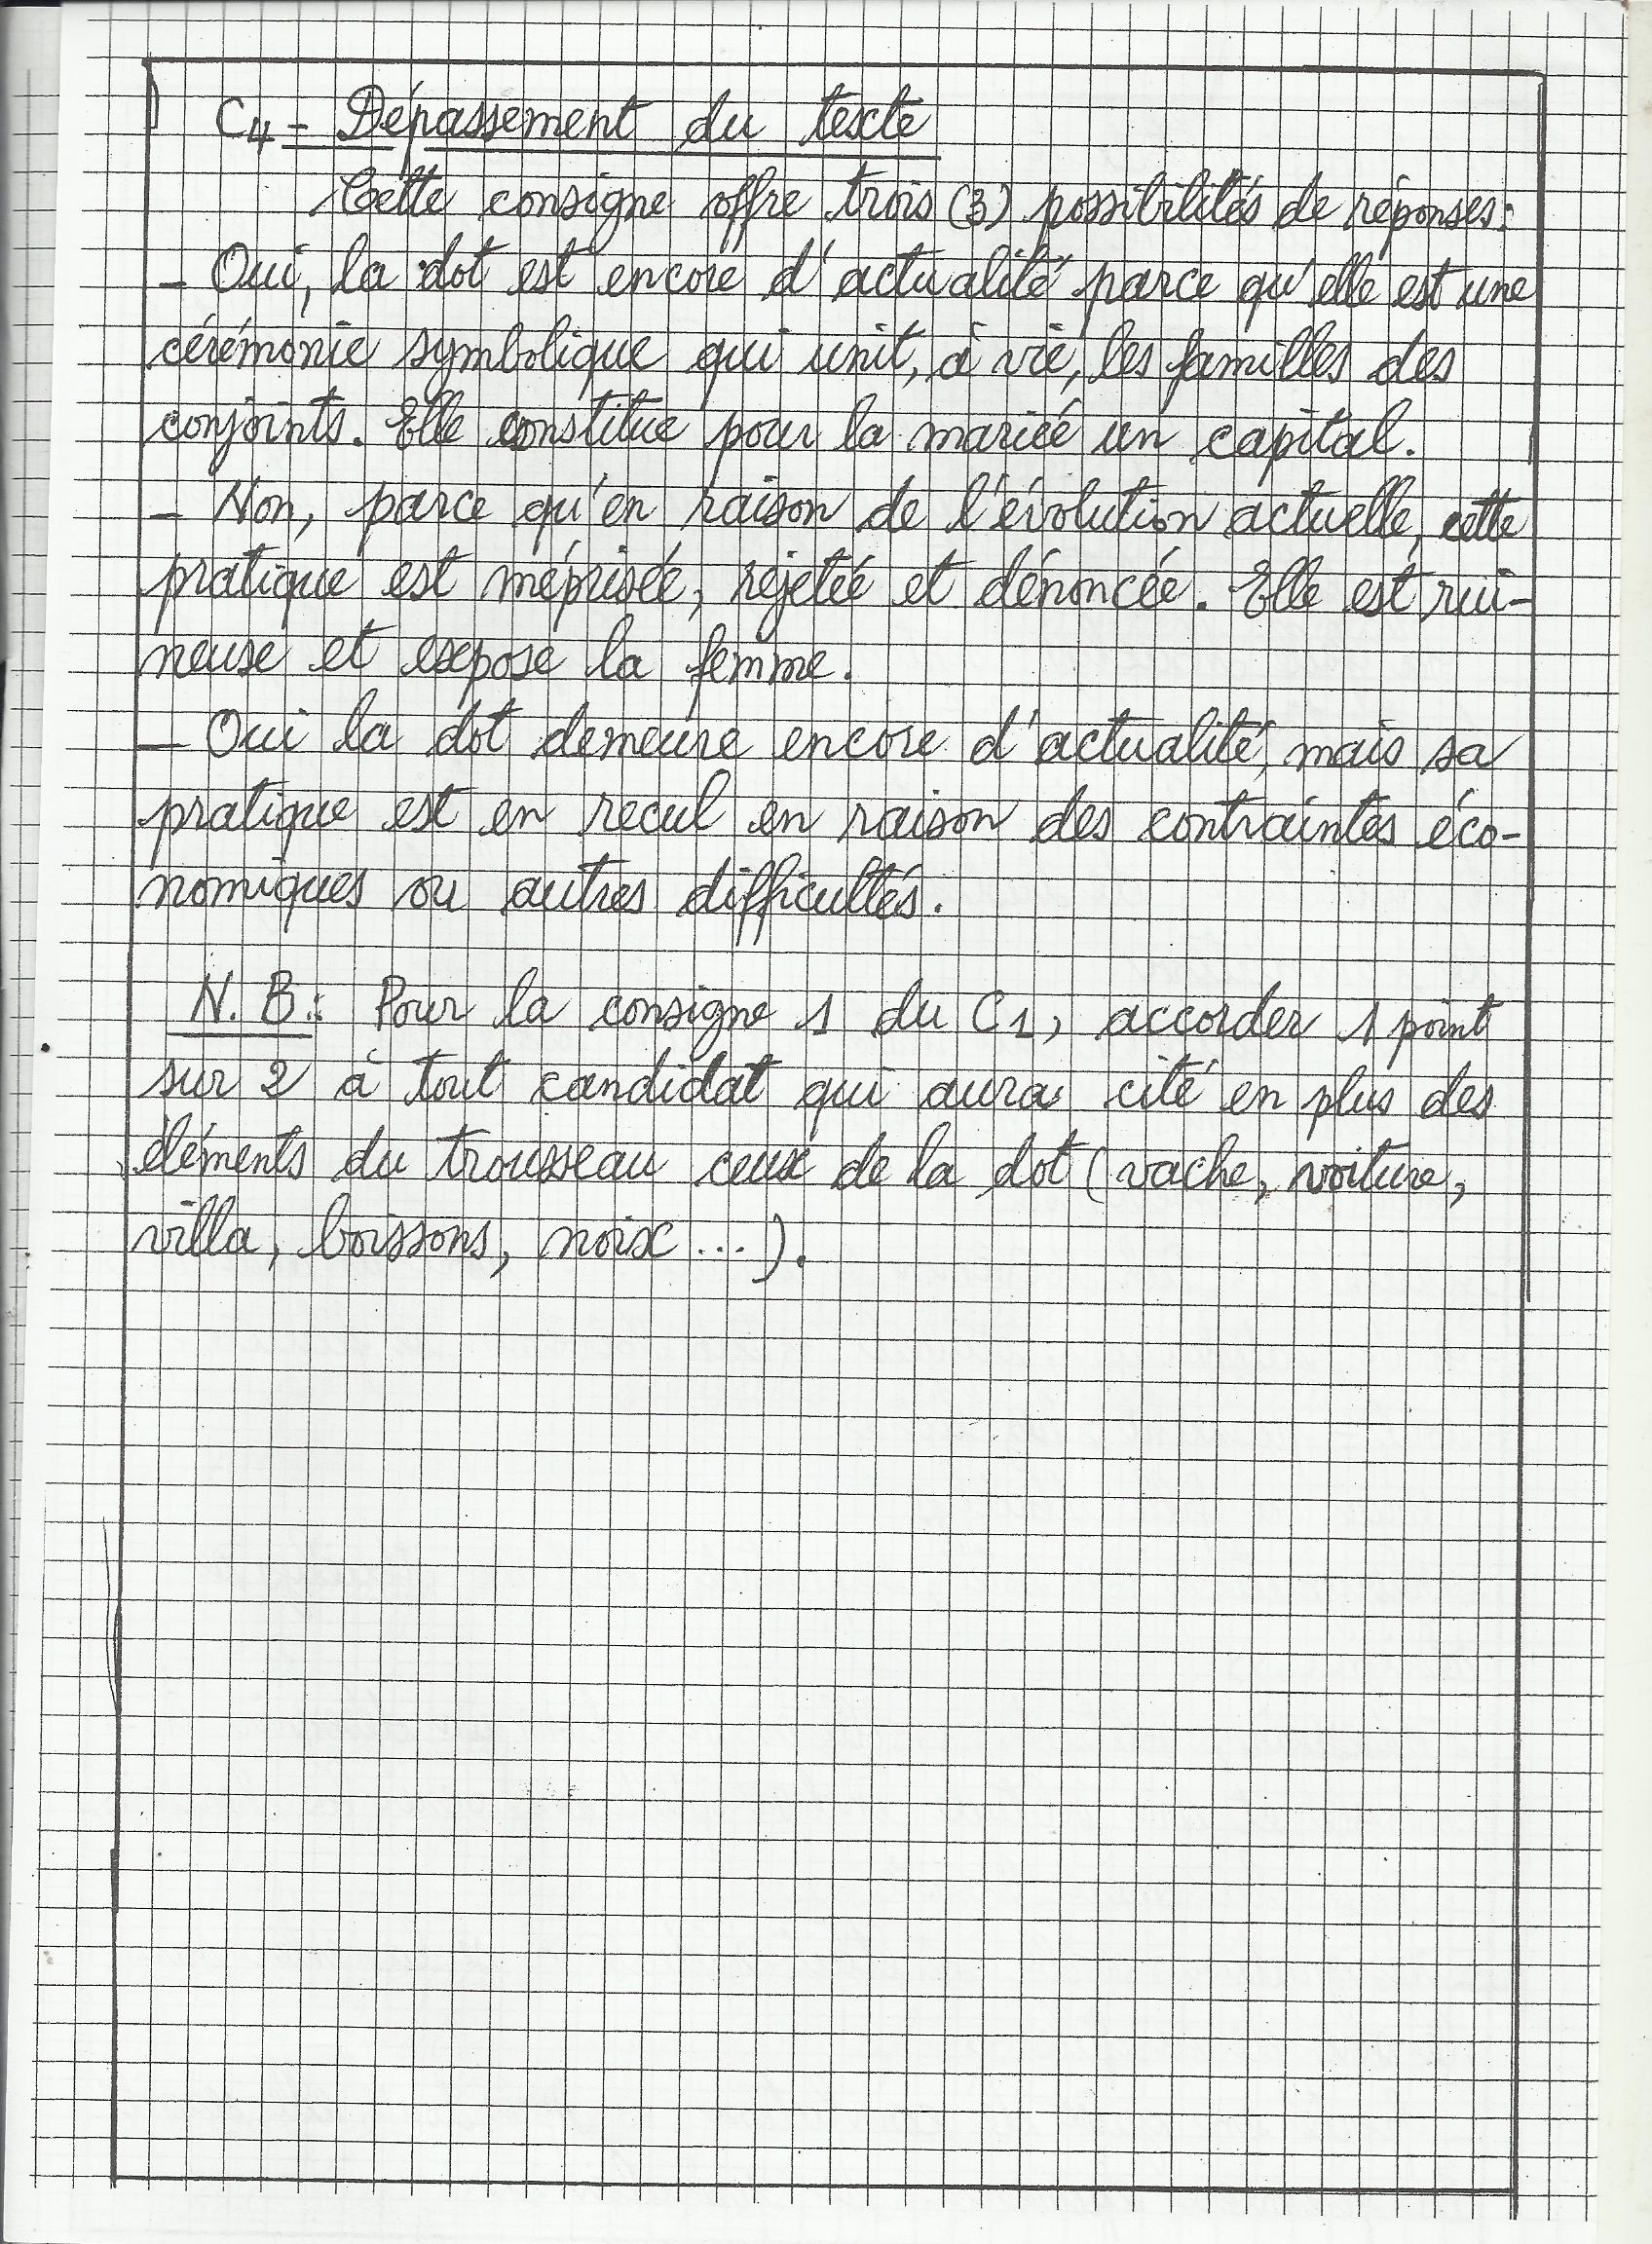 C4 - Dépassement du texte
Cette consigne offre trois (3) possibilités de réponses:
- Oui, la dot est encore d'actualité parce qu'elle est une
cérémonie symbolique qui unit, à vie, les familles des
conjoints. Elle constitue pour la mariée un capital.
- Non, parce qu'en raison de l'évolution actuelle, cette
pratique est méprisée, rejetée et dénoncée. Elle est rui-
neuse et expose la femme.
- Oui la dot demeure encore d'actualité, mais sa
pratique est en recul en raison des contraintes éco-
nomiques ou autres difficultés.
N.B.: Pour la consigne 1 du C1, accorder 1 point
sur 2 à tout candidat qui aura cité en plus des
éléments du trousseau ceux de la dot (vache, voiture,
villa, boissons, noix ...).